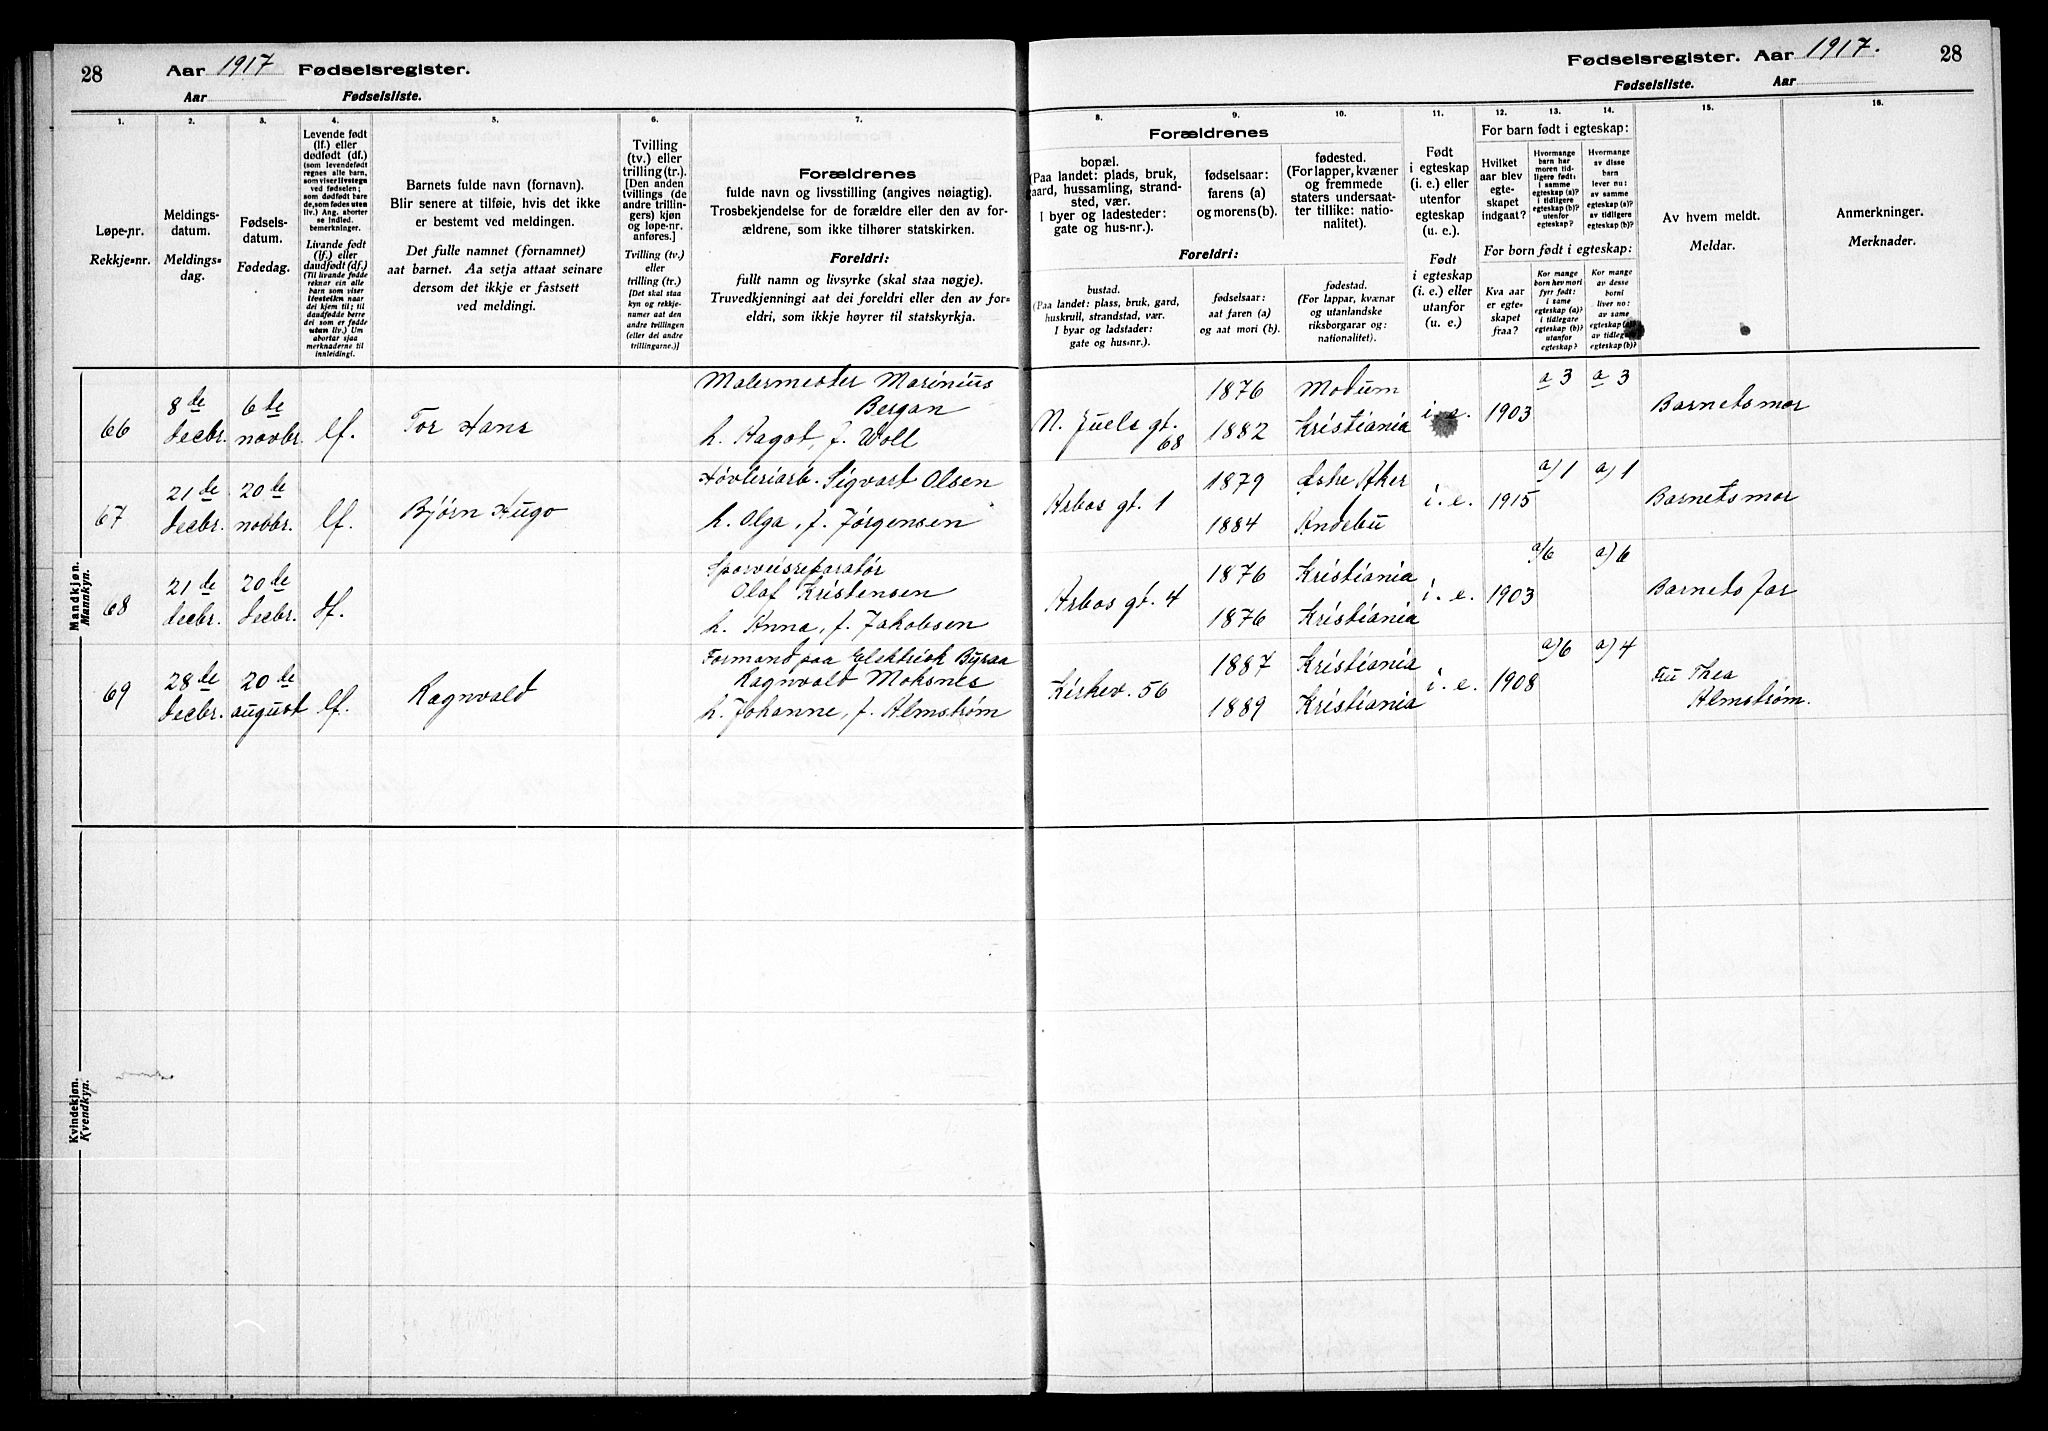 28 Aar 1917 Fødselsregister.
Aar Fødselsliste.
1. 2. 3. 4. 5. 6. 7.
Løpe-nr.
Rekkje-nr.
Meldings-
datum.
Meldings-
dag.
Fødsels-
datum.
Fødedag.
Levende født
(lf.) eller
dødfødt (df.)
(som levendefødt
regnes alle barn,
som viser livstegn
ved fødselen;
som dødfødt bare
de, som fødes uten
liv.) Ang. aborter
se indled.
bemerkninger.
Livande født
(lf.) eller
daudfødt (df.)
(Til livande fødde
reknar ein alle
barn som viser
livsteikn naar
dei kjem til; til
daudfødde berre
dei som er fødde
utan liv.) Um
abortar sjaa
merknaderne til
innleidingi.
Barnets fulde navn (fornavn).
Blir senere at tilføie, hvis det ikke
er bestemt ved meldingen.
Det fulle namnet (fornamnet)
aat barnet. Aa setja attaat seinare
dersom det ikkje er fastsett
ved meldingi.
Tvilling
(tv.) eller
trilling(tr.).
[Den anden
tvillings (de
andre trillin-
gers) kjøn
og løpe-nr.
anføres.]
Tvilling (tv.)
eller
trilling (tr.)
[Det skal staa
kyn og rekkje-
numer aat den
andre tvillingen
(eller dei andre
trillingarne.)]
Forældrenes
fulde navn og livsstilling (angives nøiagtig).
Trosbekjendelse for de forældre eller den av for-
ældrene, som ikke tilhører statskirken.
Foreldri:
fullt namn og livsyrke (skal staa nøgje).
Truvedkjenningi aat dei foreldri eller den av for-
eldri, som ikkje høyrer til statskyrkja.
Mandkjøn.
Mannkyn.
66
8 de
decbr.
6 de
novbr.
lf.
Tor Hans
Malermester Marinius
Bergan
h. Aagot, f. Woll
67
21 de
decbr.
20 de
novbr.
lf.
Bjørn Hugo
Høvleriarb. Sigvart Olsen
h. Olga, f. Jørgensen
68
21 de
decbr.
20 de
decbr.
df.
Sporveisreparatør
Olaf Kristensen
h. Anna, f. Jakobsen
69
28 de
decbr.
20 de
august
lf.
Ragnvald
Formand paa Elektrisk Byraa
Ragnvald Moksnes
h. Johanne, f. Almstrøm
Kvindekjøn.
Kvendkyn.
Fødselsregister. Aar 1917. 28
Fødselsliste. Aar
8. 9. 10. 11. 12. 13. 14. 15. 16.
Forældrenes
bopæl.
(Paa landet: plads, bruk,
gaard, hussamling, strand-
sted, vær.
I byer og ladesteder:
gate og hus-nr.).
fødselsaar:
farens (a)
og morens (b).
fødested.
(For lapper, kvæner
og fremmede
staters undersaat-
ter tillike: natio-
nalitet).
Foreldri:
bustad.
(Paa landet: plass, bruk, gard,
huskrull, strandstad, vær.
I byar og ladstader:
gate og hus-nr.).
fødselsaar:
aat faren (a)
og aat mori (b).
fødestad.
(For lappar, kvænar
og utanlandske
riksborgarar og:
nationalitet).
Født
i egteskap
(i. e.) eller
utenfor
egteskap
(u. e.).
Født
i egteskap
(i. e.) eller
utanfor
(u. e.)
For barn født i egteskap:
Hvilket
aar blev
egte-
skapet
indgaat?
Hvormange
barn har
moren tid-
ligere født:
i samme
egteskap (a)?
i tidligere
egteskap (b)?
utenfor
egteskap?
Hvormange
av disse
barn
lever nu:
av samme
egteskap (a)?
av tidligere
egteskap (b)?
For born født i egteskap:
Kva aar
er egte-
skapet
fraa?
Kor mange
born hev mori
fyrr født:
i same
egteskap (a)?
i tidlegare
egteskap (b)?
utanfor
egteskap?
Kor mange
av desse
borni
liver no:
av same
egteskap (a)?
av tidlegare
egteskap (b)?
Av hvem meldt.
Meldar.
Anmerkninger.
Merknader.
N. Juels gt.
68
1876
1882
Modum
Kristiania
i. e.
1903
a 3
a 3
Barnets mor
Arbos gt. 1
1879
1884
Østre Aker
Andebu
i. e.
1915
a) 1
a) 1
Barnets mor
Arbos gt. 4
1876
1876
Kristiania
Kristiania
i. e.
1903
a) 6
a) 6
Barnets far
Kirkev. 56
1887
1889
Kristiania
Kristiania
i. e.
1908
a) 6
a) 4
Fru Thea
Almstrøm.